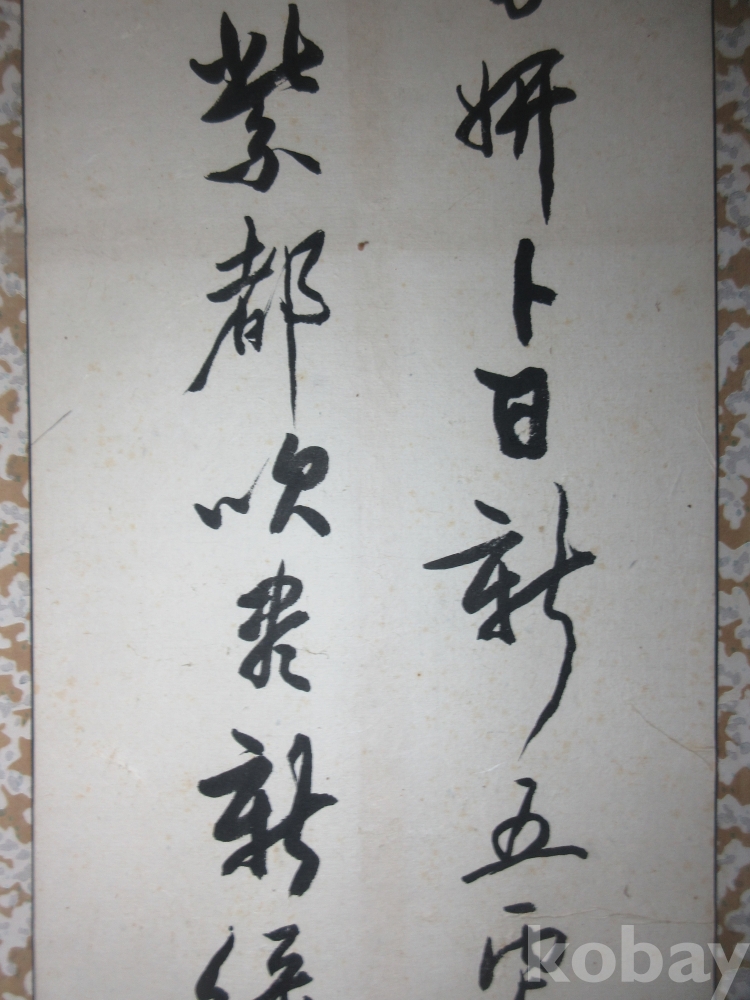 妍卜日新五
紫都吹盡新
kobay